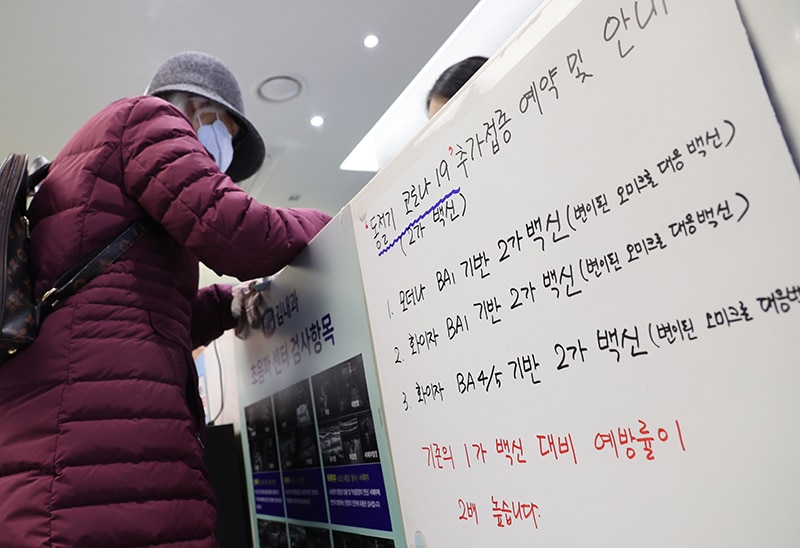 '동절기 코로나19' 추가접종 예약 및 안내
(2가 백신)
1. 모더나 BA1 기반 2가 백신 (변이된 오미크로 대응 백신)
2. 화이자 BA1 기반 2가 백신 (변이된 오미크로 대응백신)
3. 화이자 BA4/5 기반 2가 백신 (변이된 오미크로 대응백
기존의 1가 백신 대비 예방률이
2배 높습니다.
김내과
초음파 센터 검사항목